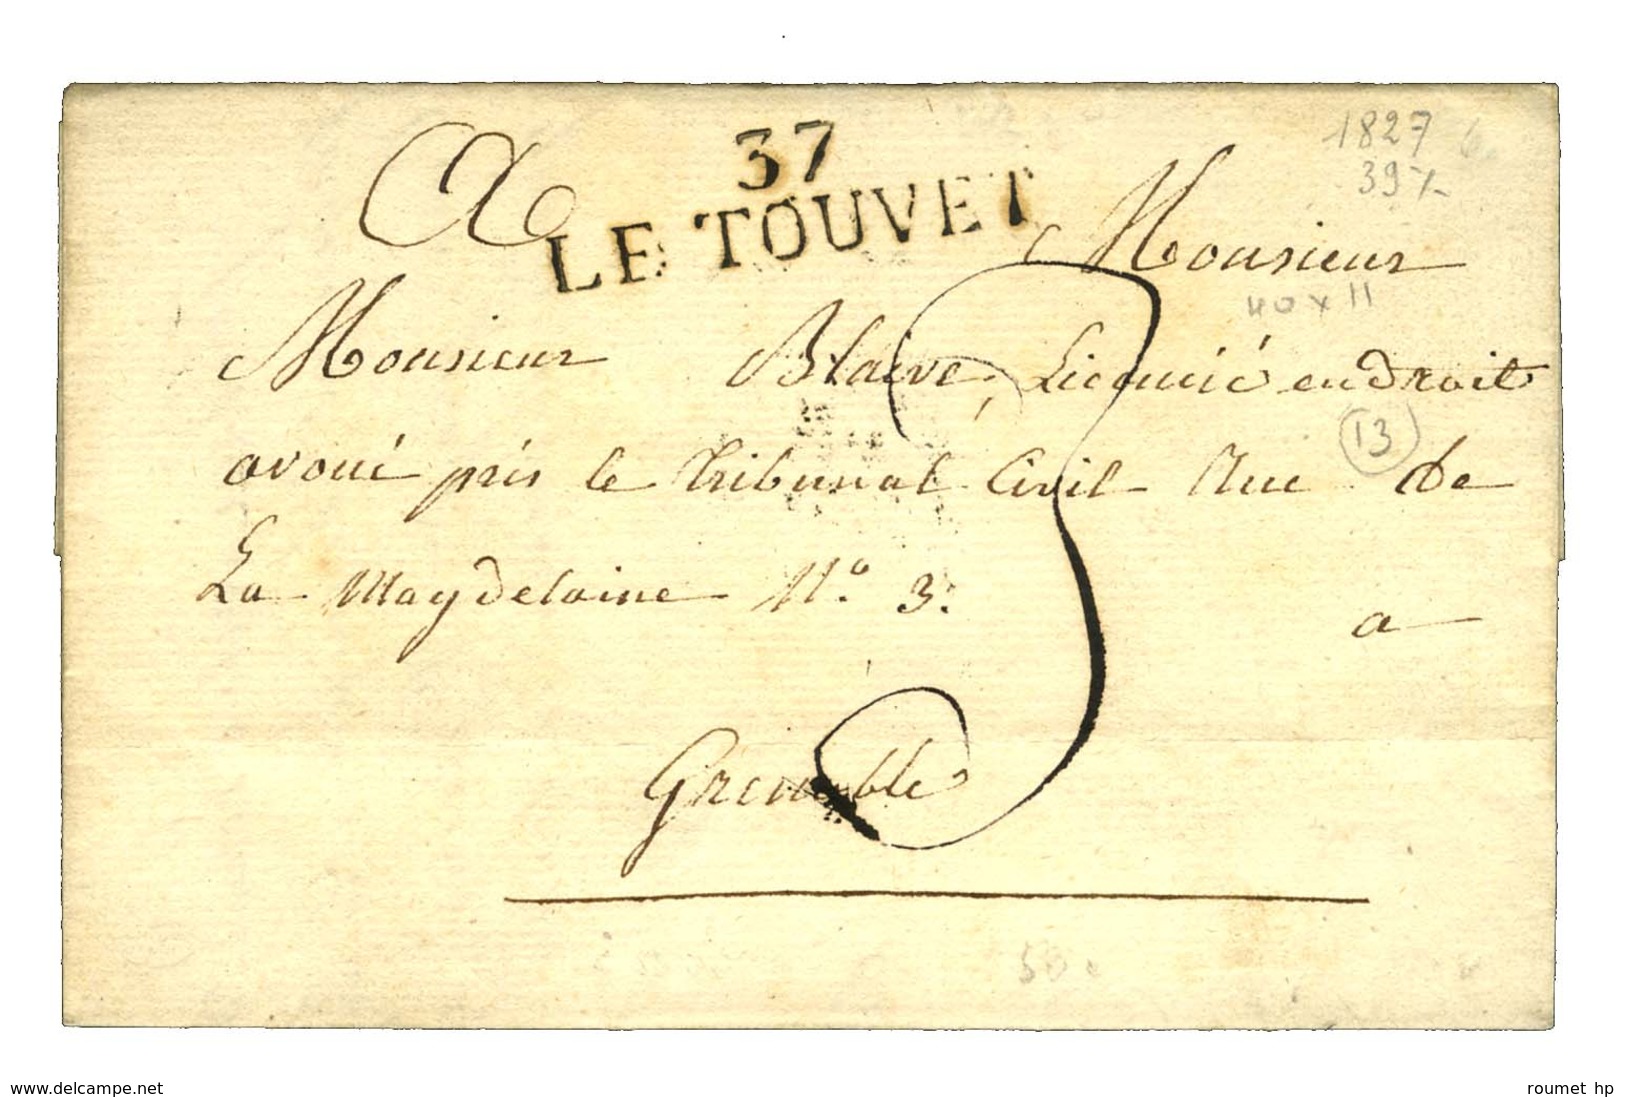 A
37
LE TOUVET
1827
39 x
Monsieur
40 x 11
Monsieur Blaive, Licencié en droit
13
avoué près le tribunal Civil Rue de
La Magdelaine N.° 3.
a
Grenoble
3
50
www.delcampe.net
roumet hp